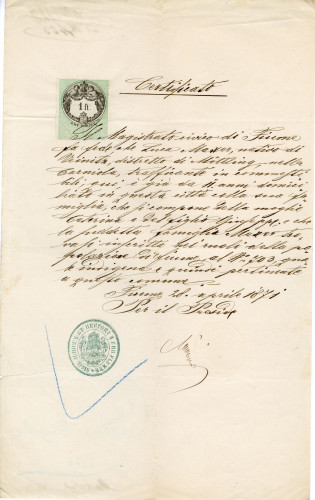 Certificato
1 fl.
Il Magistrato civico di Fiume
fa fede che Luca Maver, nativo di
distretto di Möttling, nella
Carniola, trafficante in commesti-
bili, qui è già da anni domici-
liato in questa città colla sua fa-
miglia, che si compone della moglie
Catterina e del figlio Giuseppe, e che
la suddetta famiglia Maver tro-
vasi inscritta nei ruoli della po-
polazione di Fiume al Nro 703, quale
indigena e quindi pertinente
a questo comune.
Fiume 26 aprile 1871
Per il Preside